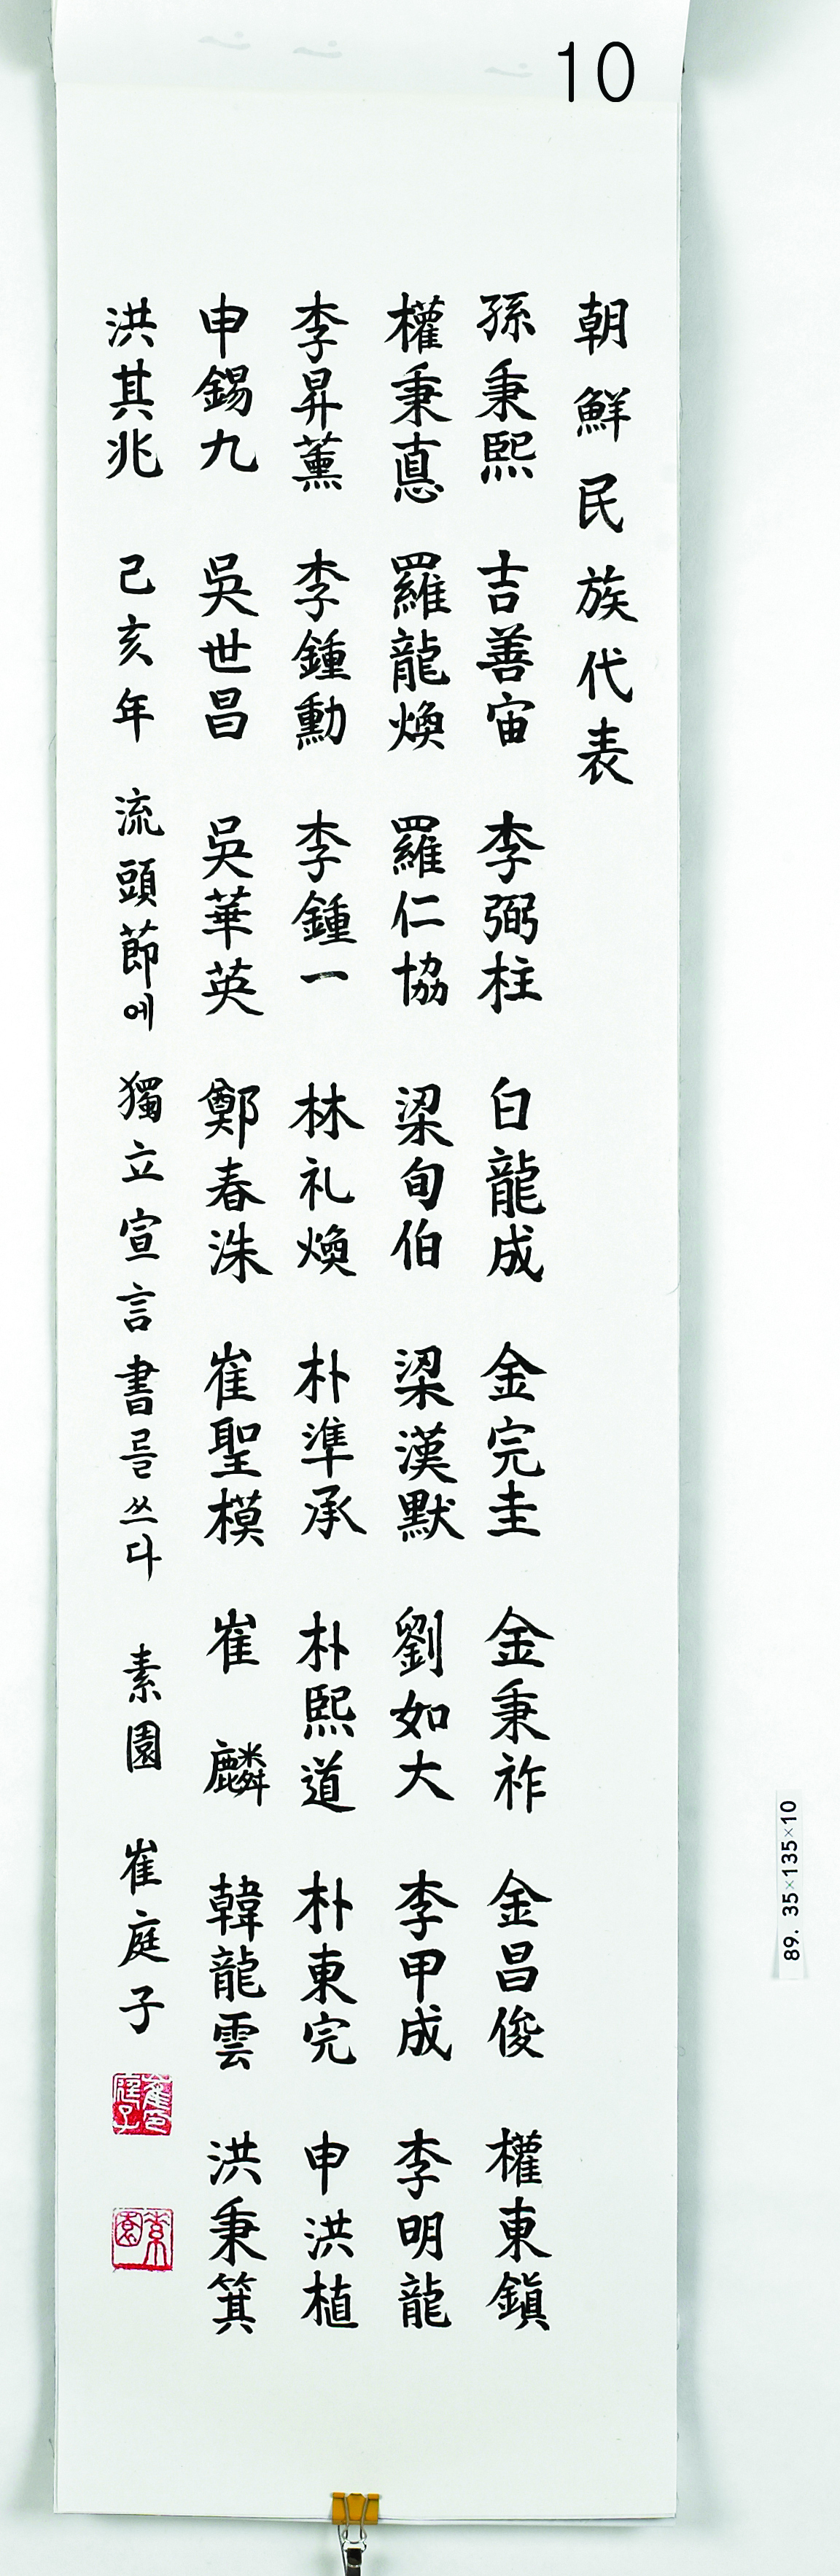 10
朝鮮民族代表
孫秉熙 吉善宙 李弼柱 白龍成 金完圭 金秉祚 金昌俊 權東鎭
權秉悳 羅龍煥 羅仁協 梁甸伯 梁漢默 劉如大 李甲成 李明龍
李昇薰 李鍾勳 李鍾一 林礼煥 朴準承 朴熙道 朴東完 申洪植
申錫九 吳世昌 吳華英 鄭春洙 崔聖模 崔麟 韓龍雲 洪秉箕
洪其兆 己亥年 流頭節에 獨立宣言書를 쓰다 素園 崔庭子
崔庭子
素園
89. 35×135×10